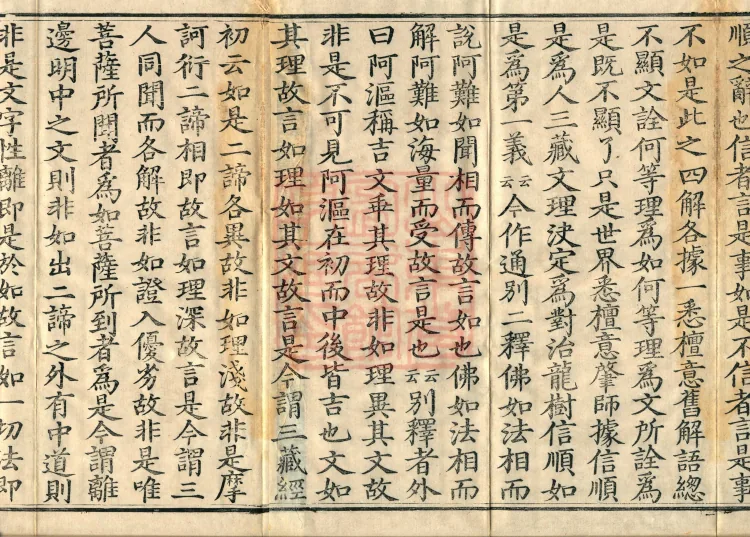 順之辭也信者言是事如是不信者言是事
不如是此之四解各據一悉檀意舊解語總
不顯文詮何等理爲如何等理爲文所詮爲
是既不顯了只是世界悉檀意肇師據信順
是爲人三藏文理決定爲對治龍樹信順如
是爲第一義云云今作通別二釋佛如法相而
說阿難如聞相而傳故言如也佛如法相而
解阿難如海量而受故言是也云云別釋者外
曰阿漚稱吉文乖其理故非如理異其文故
非是不可見阿漚在初而中後皆吉也文如
其理故言如理如其文故言是今謂三藏經
初云如是二諦各異故非如理淺故非是摩
訶衍二諦相即故言如理深故言是今謂三
人同聞而各解故非如證入優劣故非是唯
菩薩所聞者爲如菩薩所到者爲是今謂離
邊明中之文則非如出二諦之外有中道則
非是文字性離即是於如故言如一切法即